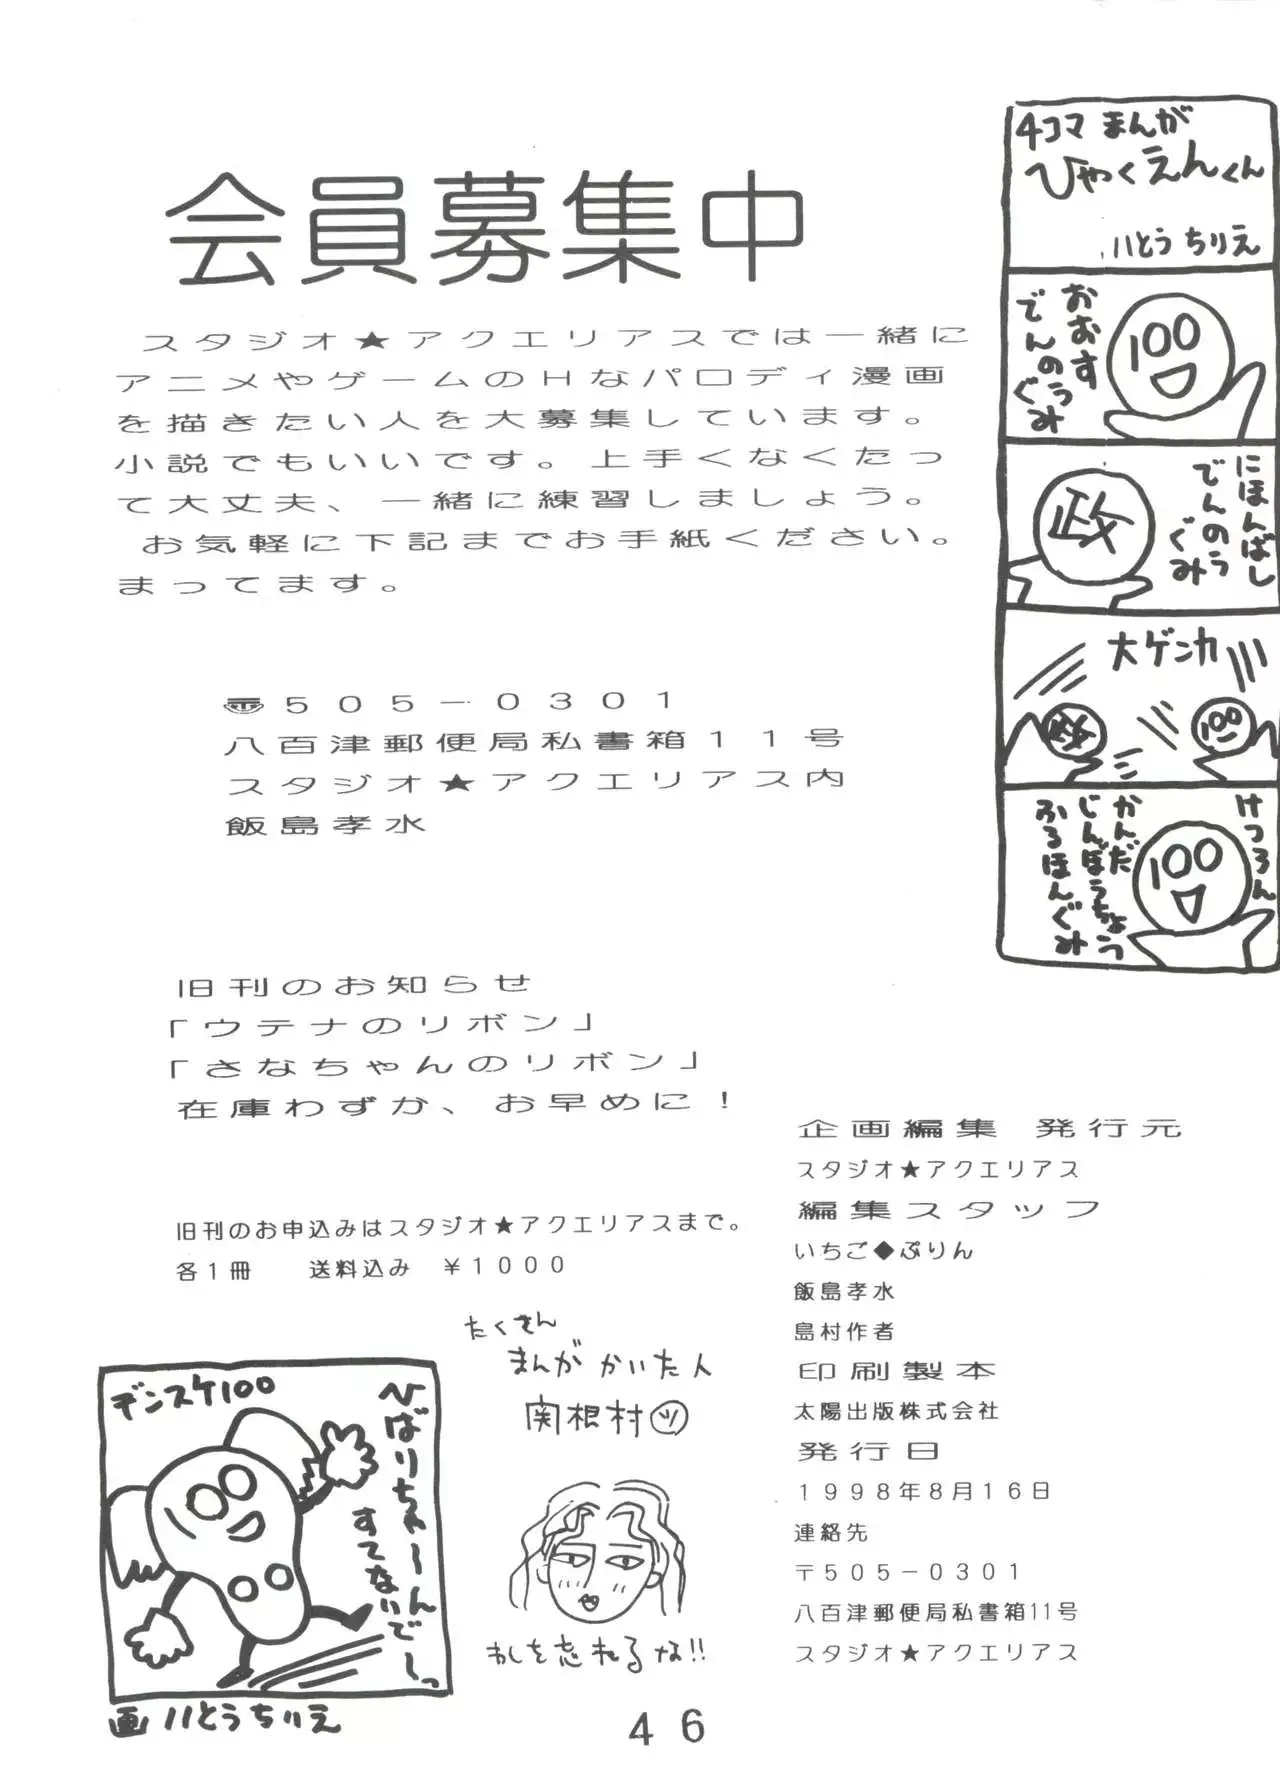 会員募集中
スタジオ★アクエリアスでは一緒に
アニメやゲームのHなパロディ漫画
を描きたい人を大募集しています。
小説でもいいです。上手くなくたっ
て大丈夫、一緒に練習しましょう。
お気軽に下記までお手紙ください。
まってます。
〠505-0301
八百津郵便局私書箱11号
スタジオ★アクエリアス内
飯島孝水
旧刊のお知らせ
「ウテナのリボン」
「さなちゃんのリボン」
在庫わずか、お早めに!
旧刊のお申込みはスタジオ★アクエリアスまで。
各1冊 送料込み ¥1000
4コマ まんが
ひゃくえんくん
いとう ちりえ
おおす
でんのうぐみ
100
にほんばし
でんのうぐみ
政
大ゲンカ
政
100
けつろん
100
かんだ
じんぼうちょう
ふるほんぐみ
デンスケ100
ひばりちゃーん
すてないでーっ
画 いとうちりえ
たくさん
まんが かいた人
関根村ツ
わしを忘れるな!!
企画編集 発行元
スタジオ★アクエリアス
編集スタッフ
いちご◆ぷりん
飯島孝水
島村作者
印刷製本
太陽出版株式会社
発行日
1998年8月16日
連絡先
〒505-0301
八百津郵便局私書箱11号
スタジオ★アクエリアス
46